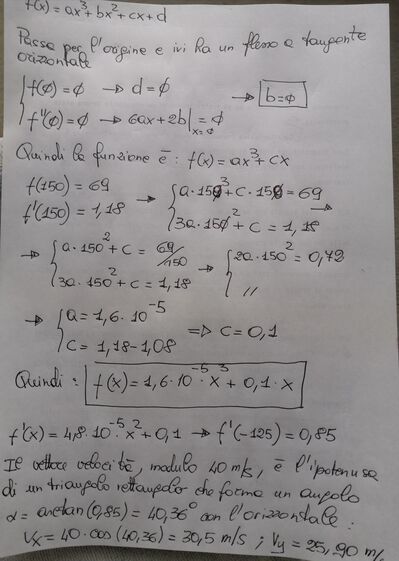 f(x) = ax³ + bx² + cx + d
Passa per l'origine e ivi ha un flesso a tangente
orizzontale
{ f(0) = 0 → d = 0
→ b = 0
f''(0) = 0 → 6ax + 2b |x=0 = 0
Quindi la funzione è : f(x) = ax³ + cx
f(150) = 69 → { a·150³ + c·150 = 69
f'(150) = 1,18 3a·150² + c = 1,18 →
→ { a·150² + c = 69/150 → { 2a·150² = 0,72
3a·150² + c = 1,18 //
→ { a = 1,6·10⁻⁵
c = 1,18 - 1,08 => c = 0,1
Quindi : f(x) = 1,6·10⁻⁵·x³ + 0,1·x
f'(x) = 4,8·10⁻⁵·x² + 0,1 → f'(-125) = 0,85
Il vettore velocità, modulo 40 m/s, è l'ipotenusa
di un triangolo rettangolo che forma un angolo
α = arctan(0,85) = 40,36° con l'orizzontale :
Vx = 40·cos(40,36) = 30,5 m/s ; Vy = 25,90 m/